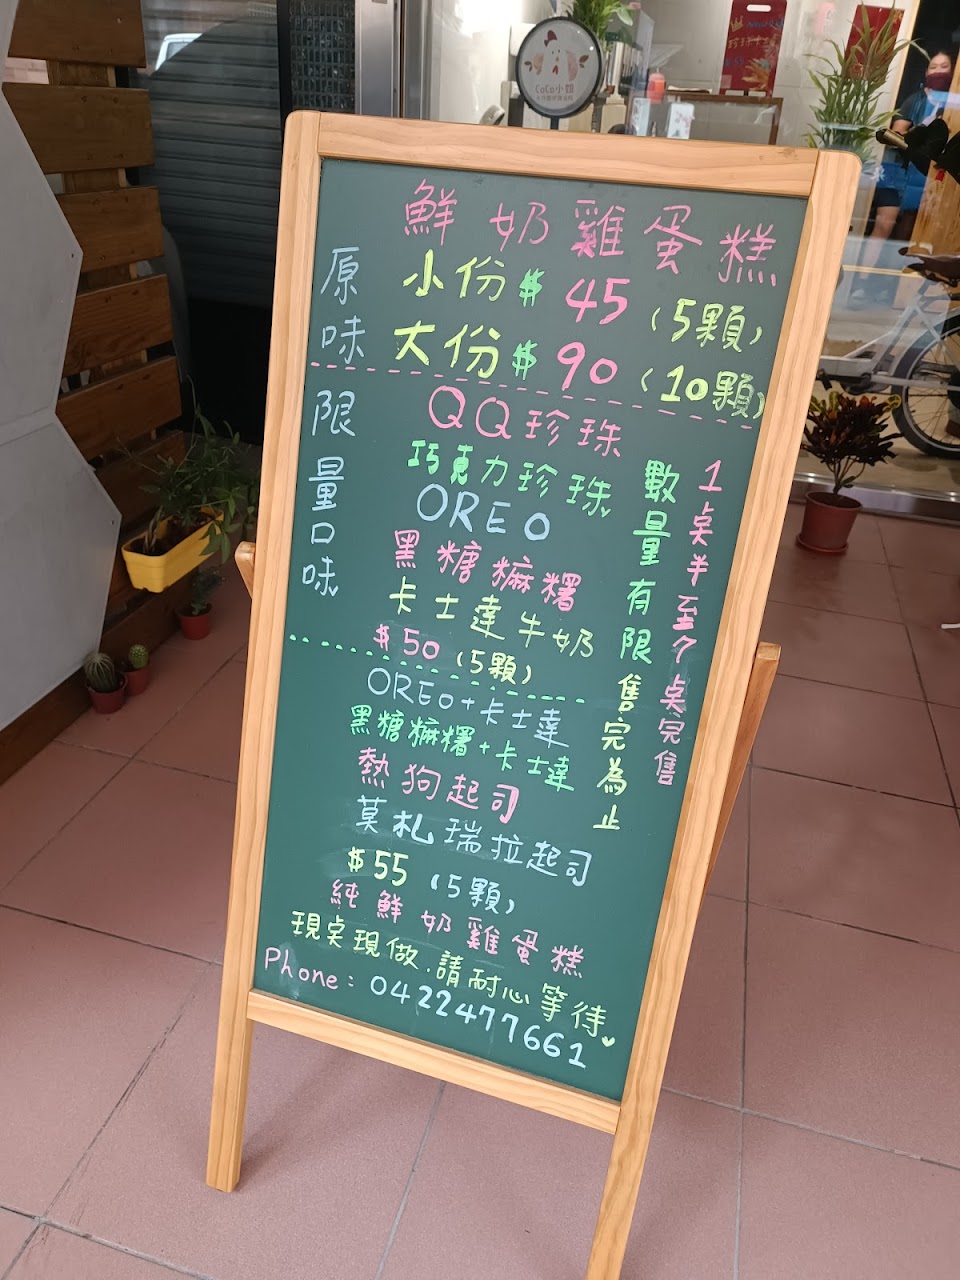 CoCo小姐
鮮奶雞蛋糕
原味
小份$45(5顆)
大份$90(10顆)
限量口味
QQ珍珠
巧克力珍珠
OREO
黑糖麻糬
卡士達牛奶
$50(5顆)
OREO+卡士達
黑糖麻糬+卡士達
熱狗起司
莫札瑞拉起司
$55(5顆)
數量有限售完為止
1桌半至7桌完售
純鮮奶雞蛋糕
現桌現做.請耐心等待♥
Phone:0422477661